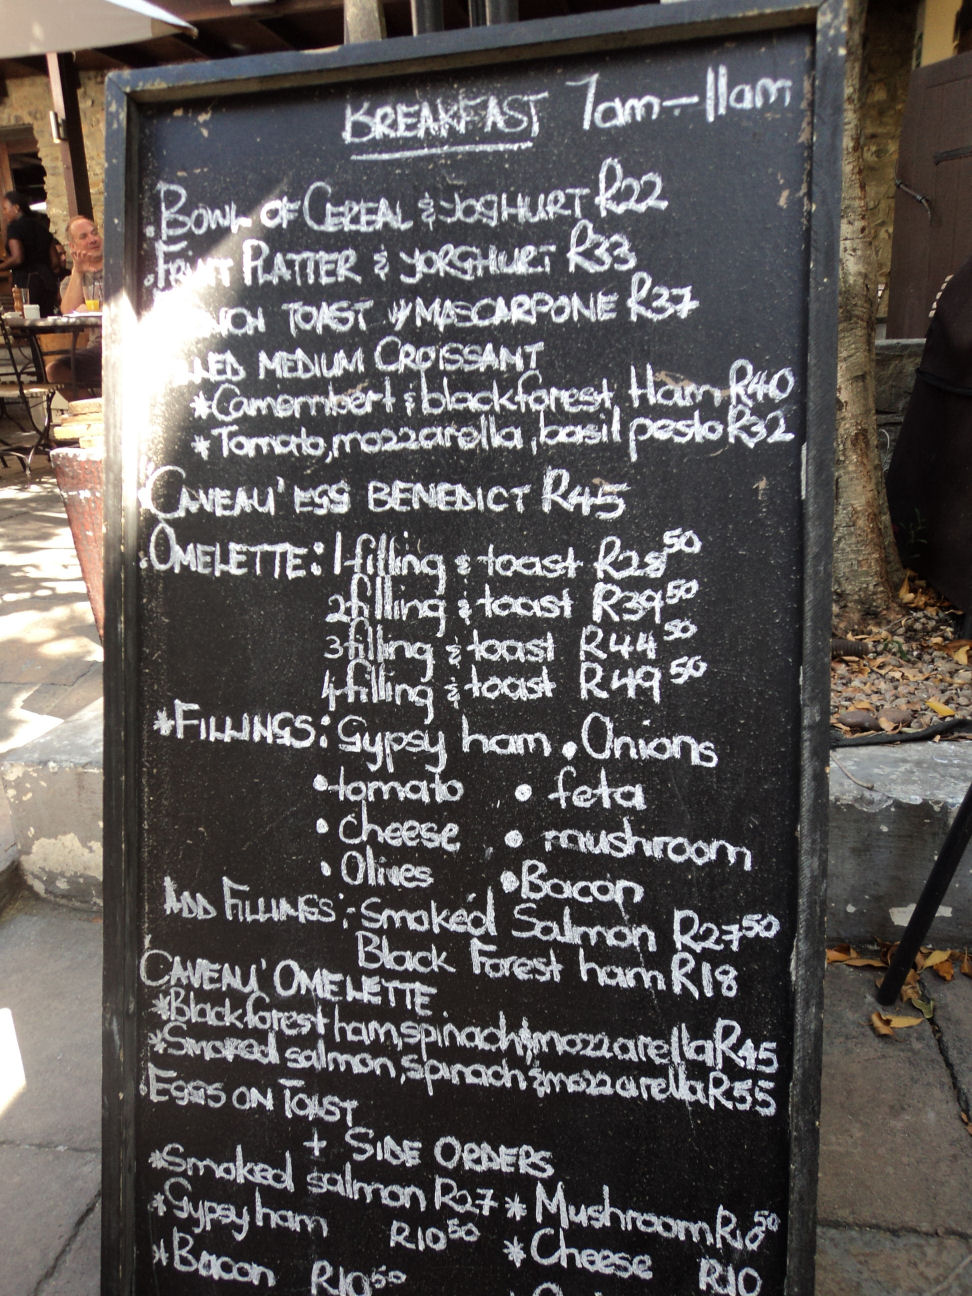 BREAKFAST 7am-11am
.BOWL OF CEREAL & YOGHURT R22
.FRUIT PLATTER & YORGHURT R33
TOAST W MASCARPONE R37
MEDIUM CROISSANT
*Camembert & blackforest Ham R40
*Tomato, mozzarella, basil pesto R32
.CAVEAU' EGG BENEDICT R45
.OMELETTE: 1 filling & toast R28 50
2 filling & toast R39 50
3 filling & toast R44 50
4 filling & toast R49 50
*FILLINGS: Gypsy ham . Onions
• tomato • feta
• cheese • mushroom
• Olives • Bacon
ADD FILLINGS: Smoked Salmon R27 50
Black Forest ham R18
CAVEAU' OMELETTE
*Blackforest ham, spinach & mozzarella R45
*Smoked salmon, spinach & mozzarella R55
.EGGS ON TOAST
+ SIDE ORDERS
*Smoked salmon R27 * Mushroom R10 50
*Gypsy ham R10 50 * Cheese R10
*Bacon R10 50